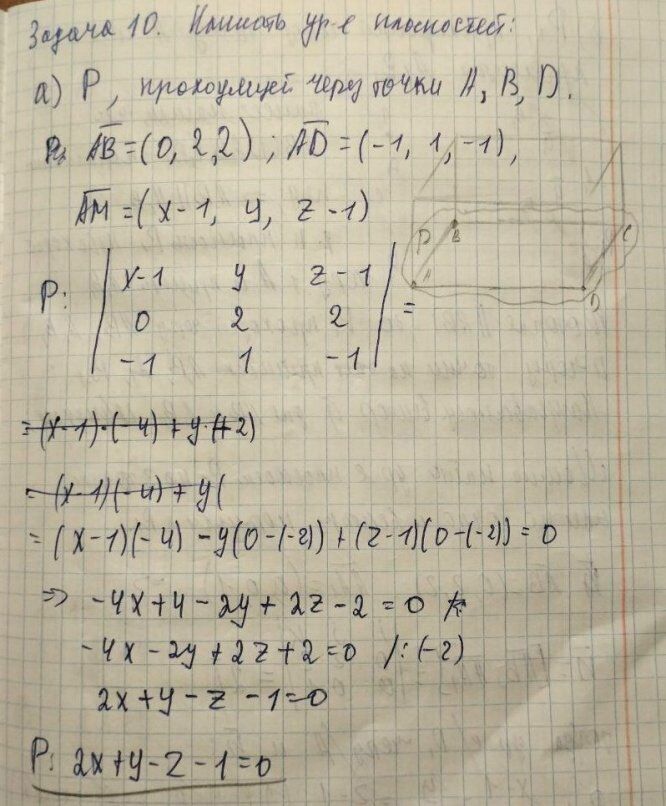 Задача 10. Написать ур-е плоскостей:
а) P, проходящей через точки A, B, D.
AB=(0, 2, 2); AD=(-1, 1, -1),
AM=(x-1, y, z-1)
P: | x-1 y z-1 |
| 0 2 2 | =
| -1 1 -1 |
= (x-1)·(-4) + y·(+2)
= (x-1)(-4) + y(
= (x-1)(-4) - y(0-(-2)) + (z-1)(0-(-2)) = 0
=> -4x+4-2y+2z-2=0
-4x-2y+2z+2=0 /:(-2)
2x+y-z-1=0
P: 2x+y-z-1=0
P
B
C
A
D